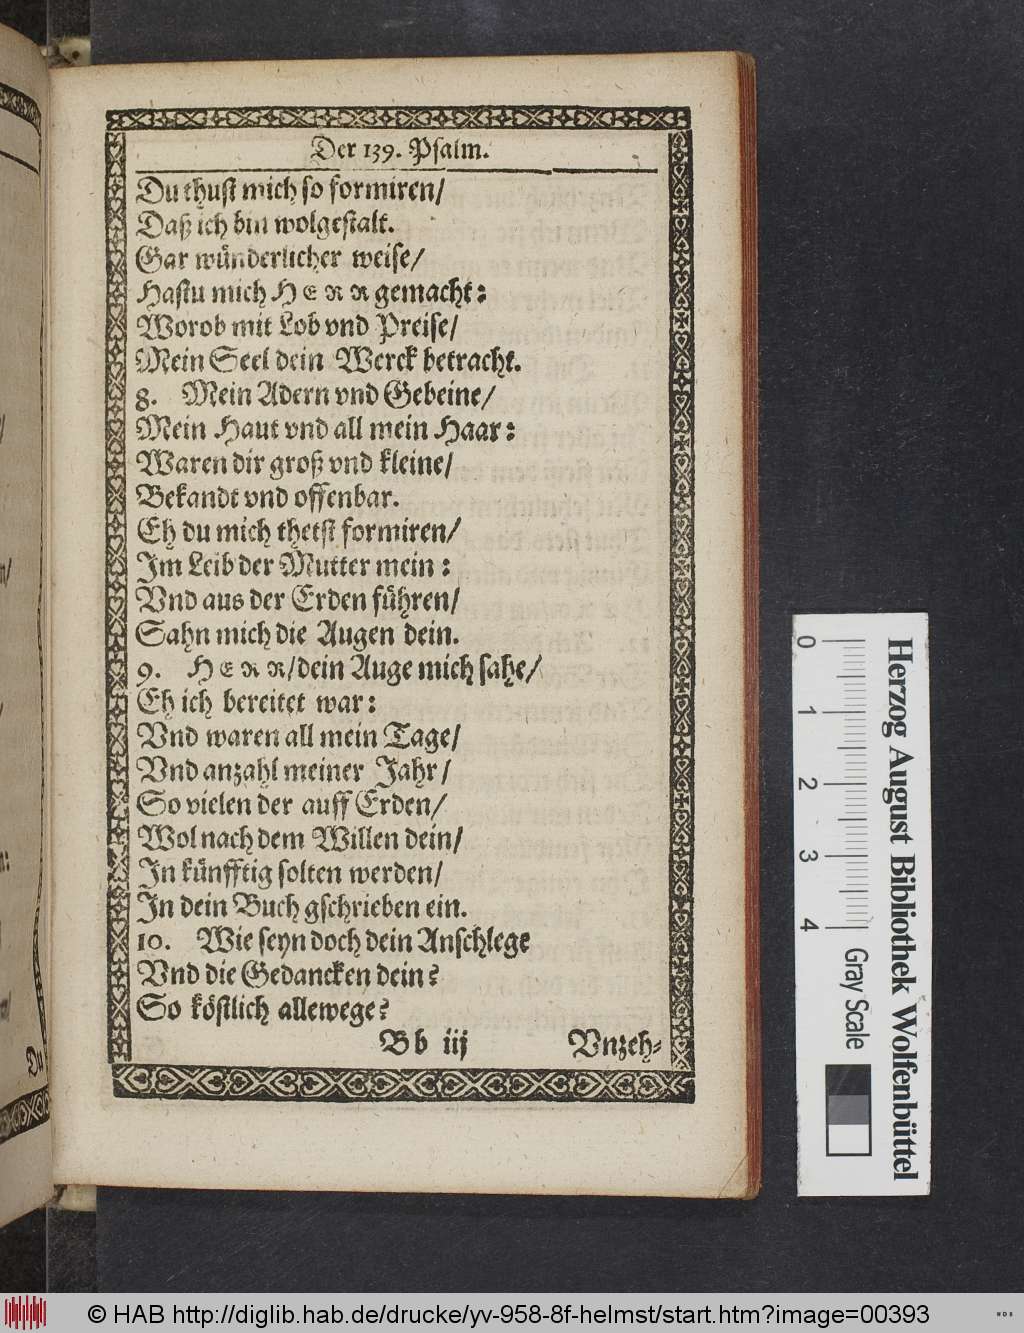 Der 139. Psalm.
Du thust mich so formiren/
Daß ich bin wolgestalt.
Gar wünderlicher weise/
Hastu mich HERR gemacht:
Worob mit Lob vnd Preise/
Mein Seel dein Werck betracht.
8. Mein Adern vnd Gebeine/
Mein Haut vnd all mein Haar:
Waren dir groß vnd kleine/
Bekandt vnd offenbar.
Eh du mich thetst formiren/
Im Leib der Mutter mein:
Vnd aus der Erden führen/
Sahn mich die Augen dein.
9. HERR/dein Auge mich sahe/
Eh ich bereitet war:
Vnd waren all mein Tage/
Vnd anzahl meiner Jahr/
So vielen der auff Erden/
Wol nach dem Willen dein/
In künfftig solten werden/
In dein Buch gschrieben ein.
10. Wie seyn doch dein Anschlege
Vnd die Gedancken dein?
So köstlich allewege?
Bb iij Vnzeh-
Du
0 1 2 3 4
Gray Scale
Herzog August Bibliothek Wolfenbüttel
© HAB http://diglib.hab.de/drucke/yv-958-8f-helmst/start.htm?image=00393